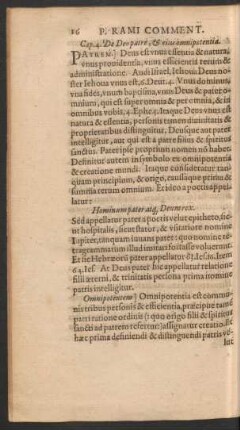 16 P. RAMI COMMENT.
Cap. 4. De Deo patre, & eius omnipotentia.
PATREM.] Deus est unus essentia & natura,
unus providentia, unus efficientia rerum &
administratione. Audi Israel, Iehova Deus no-
ster Iehova unus est, 6. Deut. 4. Unus dominus,
una fides, unum baptisma, unus Deus & pater o-
mnium, qui est super omnia & per omnia, & in
omnibus vobis, 4. Ephe. 4. Itaque Deus unus est
natura & essentia, personis tamen divinitatis &
proprietatibus distinguitur. Deusque aut pater
intelligitur, aut qui est à patre filius & spiritus
sanctus. Pater ipse proprium nomen nō habet.
Definitur autem in symbolo ex omnipotentia
& creatione mundi. Itaque consideratur tan-
quam principium, & origo, causaque primi &
summa rerum omnium. Et ideo a poetis appel-
latur:
Hominum pater atq, Deum rex.
Sed appellatur pater à poetis velut epitheto, sic-
ut hospitalis, seu stator, & visitatore nomine
Iupiter, tanquam iuuans pater: quo nomine te-
tragrammatum illud imitari
Et sic Hebræorū pater appellatur 63. Ies. 16. Item
64. Ies. At Deus pater hic appellatur relatione
filii æterni, & trinitatis persona prima nomine
patris intelligitur.
Omnipotentem] Omnipotentia est commu-
nis tribus personis & efficientia, præcipue tamē
patri ratione ordinis (à quo origo filii & spiritus
sancti ad patrem refertur) assignatur creatio. &
hæc prima definiendi & distinguendi patris